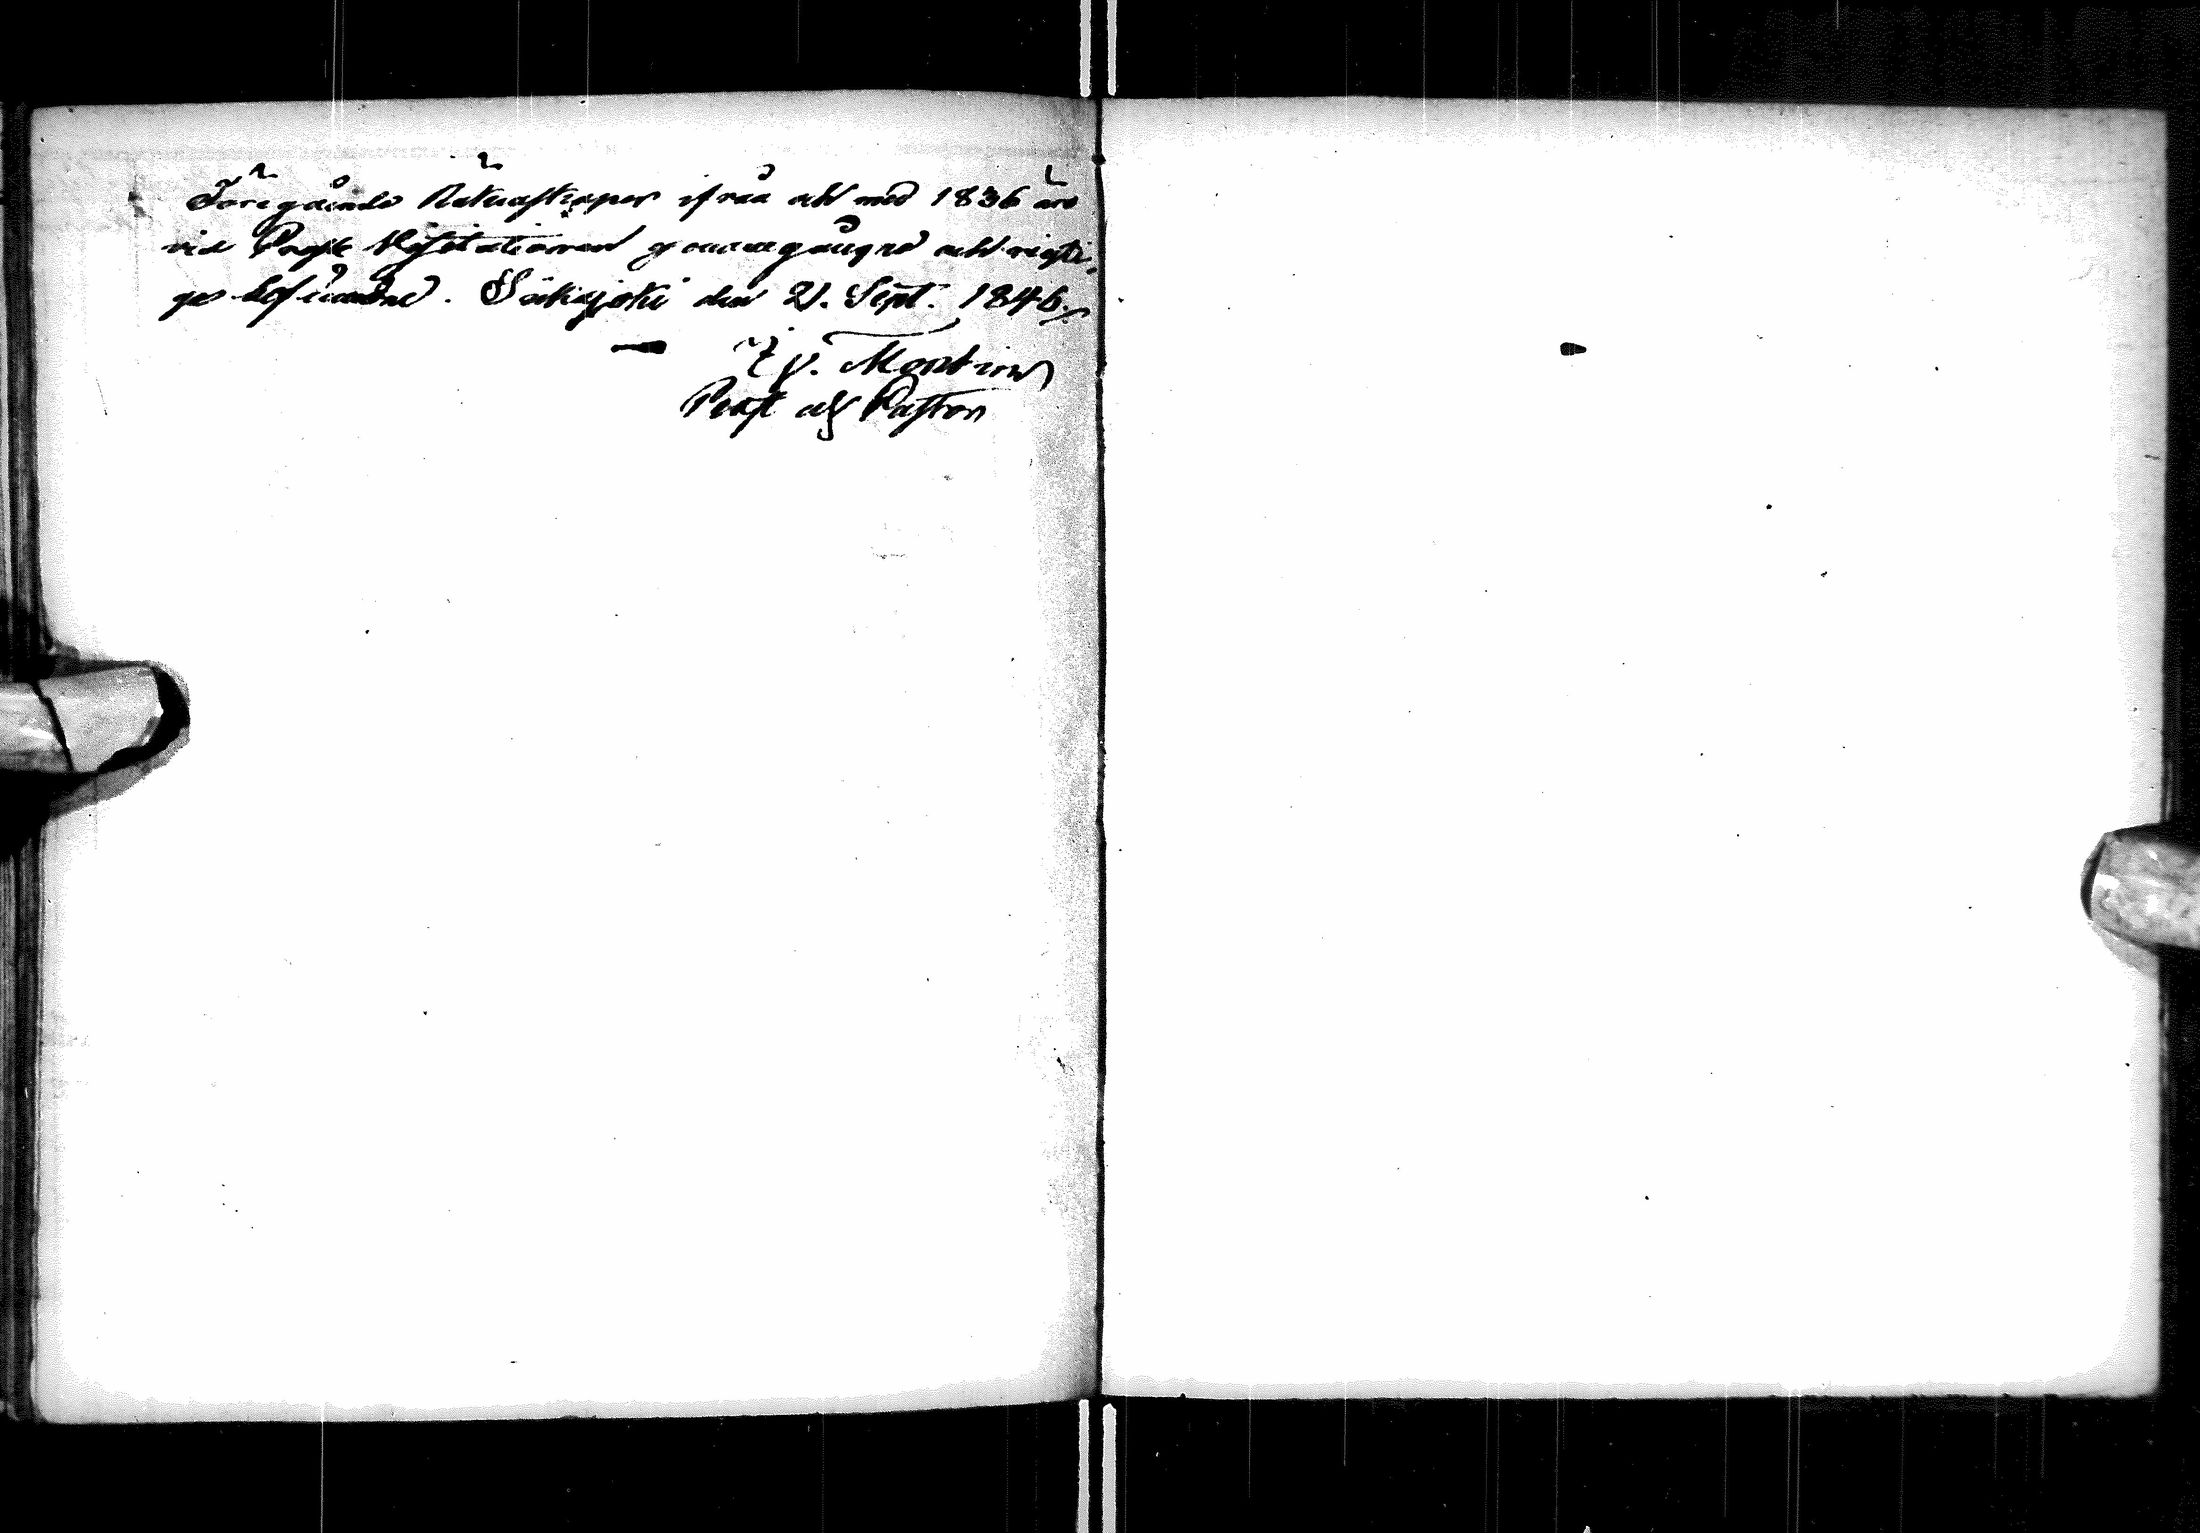 Föregående Räkenskaper ifrån och med 1836 äro
vid Prost Visitationen genomgångne och rigti-
ge befundne. Siikajoki den 21. Sept. 1846.
Montin
Prost och Pastor